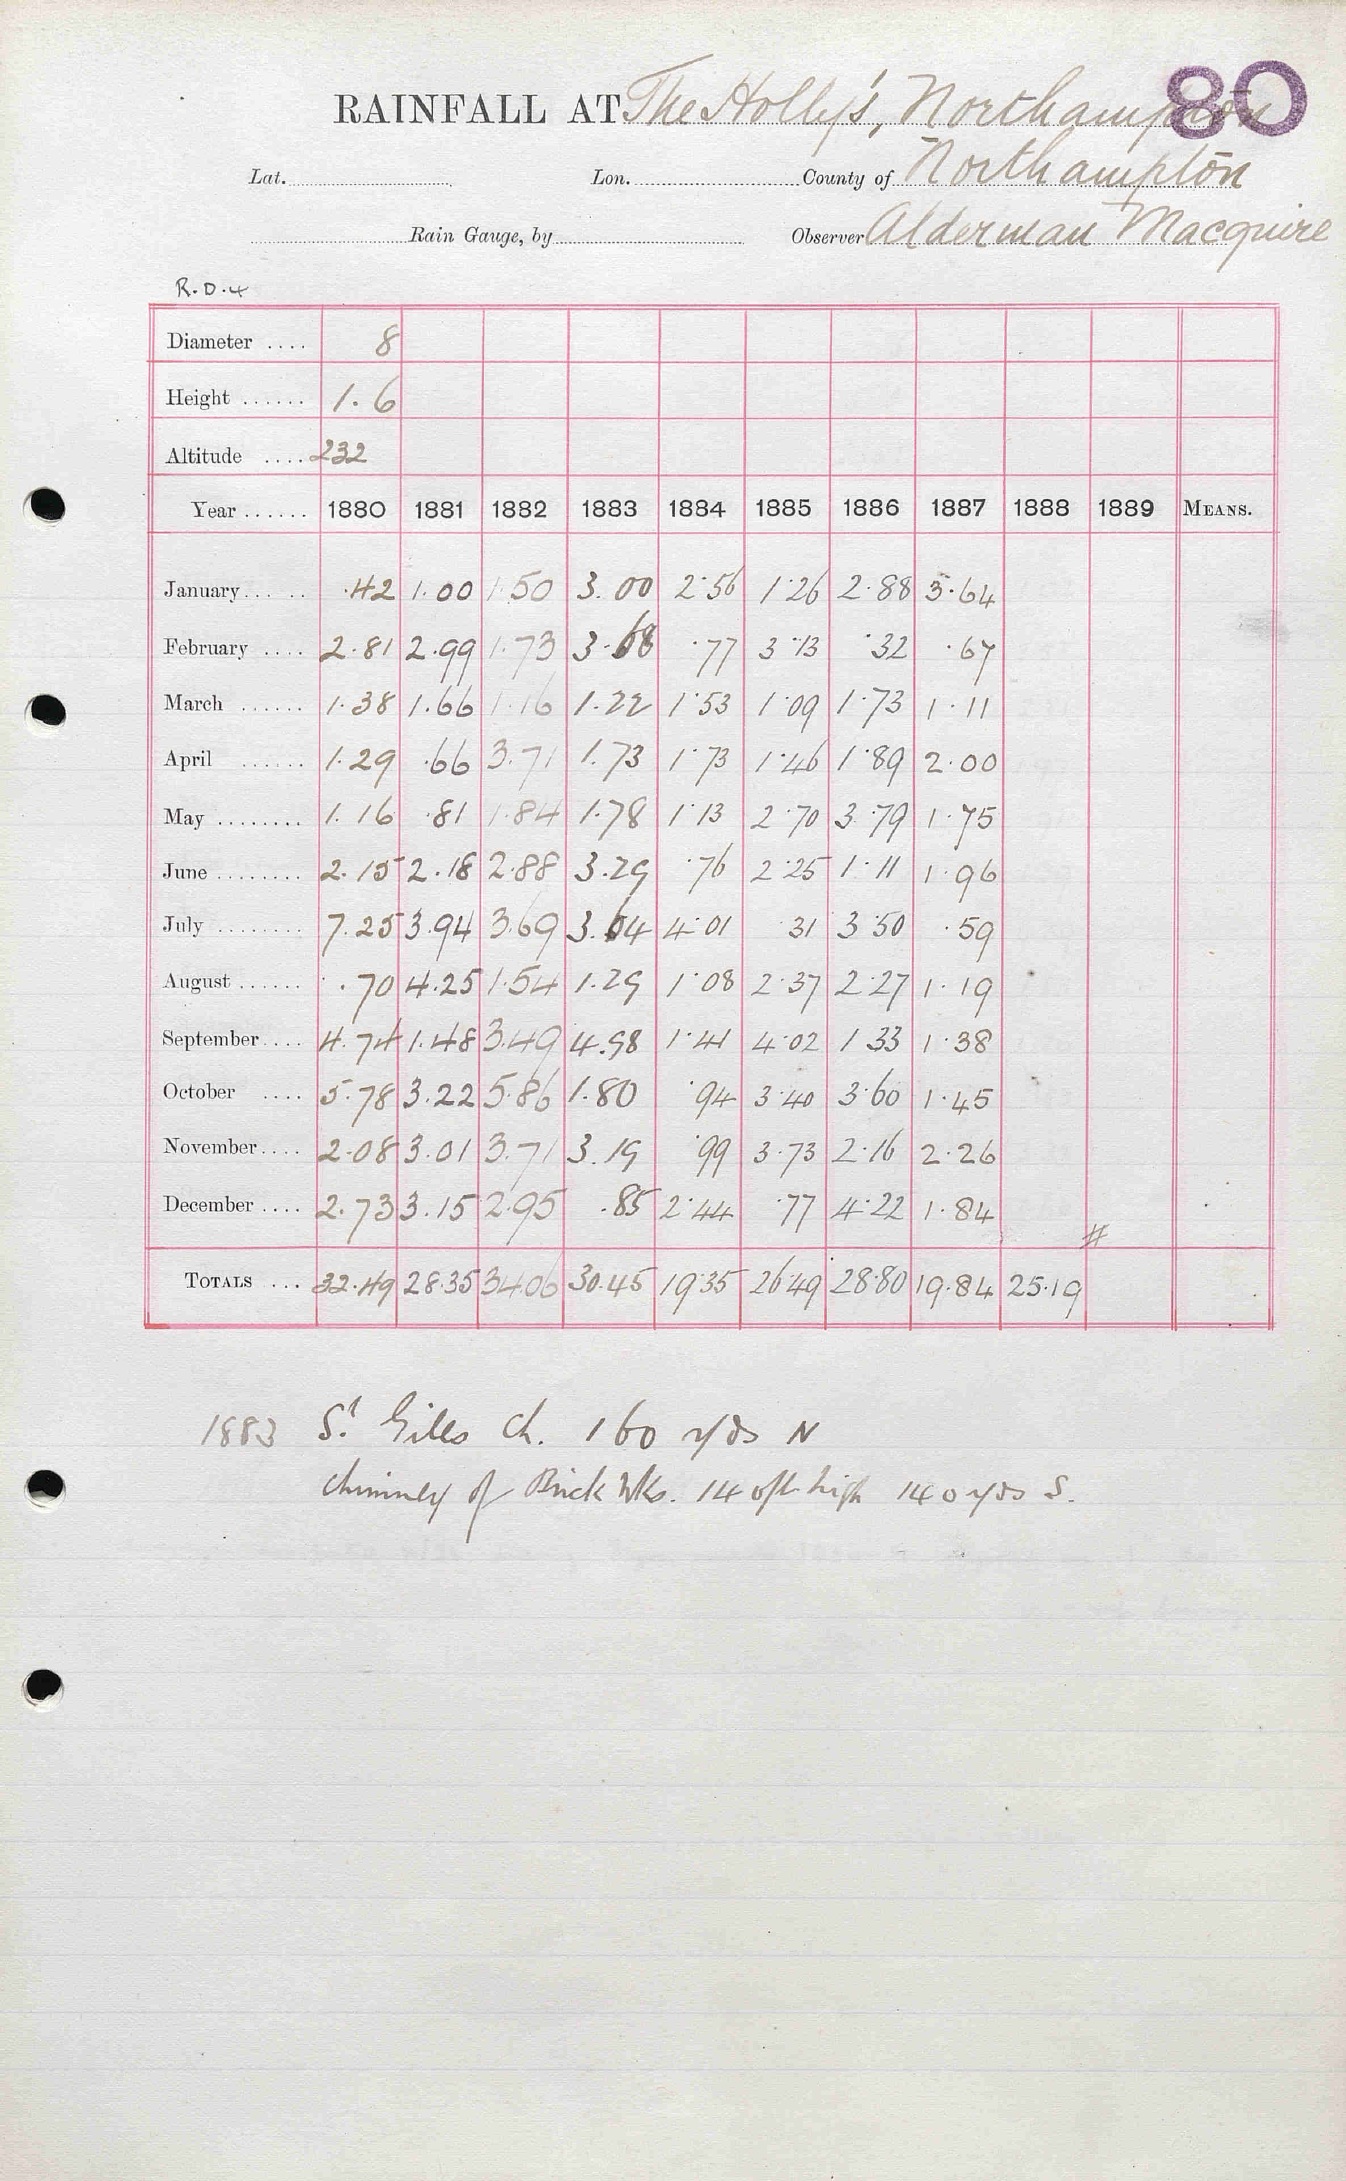 80
RAINFALL AT The Holly's, Northampton
Lat. Lon. County of Northampton
Rain Gauge, by Observer Alderman Macquire
R.D.4
Diameter .... 8
Height ...... 1.6
Altitude .... 232
Year ...... 1880 1881 1882 1883 1884 1885 1886 1887 1888 1889 MEANS.
January... .42 1.00 1.50 3.00 2.56 1.26 2.88 3.64
February .... 2.81 2.99 1.73 3.68 .77 3.13 .32 .67
March ...... 1.38 1.66 1.16 1.22 1.53 1.09 1.73 1.11
April ...... 1.29 .66 3.71 1.73 1.73 1.46 1.89 2.00
May ........ 1.16 .81 1.84 1.78 1.13 2.70 3.79 1.75
June ........ 2.15 2.18 2.88 3.29 .76 2.25 1.11 1.96
July ........ 7.25 3.94 3.69 3.64 4.01 .31 3.50 .59
August ...... .70 4.25 1.54 1.29 1.08 2.37 2.27 1.19
September.... 4.74 1.48 3.49 4.98 1.41 4.02 1.33 1.38
October .... 5.78 3.22 5.86 1.80 .94 3.40 3.60 1.45
November.... 2.08 3.01 3.71 3.19 .99 3.73 2.16 2.26
December .... 2.73 3.15 2.95 .85 2.44 .77 4.22 1.84 #
TOTALS ... 32.49 28.35 34.06 30.45 19.35 26.49 28.80 19.84 25.19
1883 St. Giles Ch. 160 yds N
Chimney of Brick Wks. 140 ft high 140 yds S.